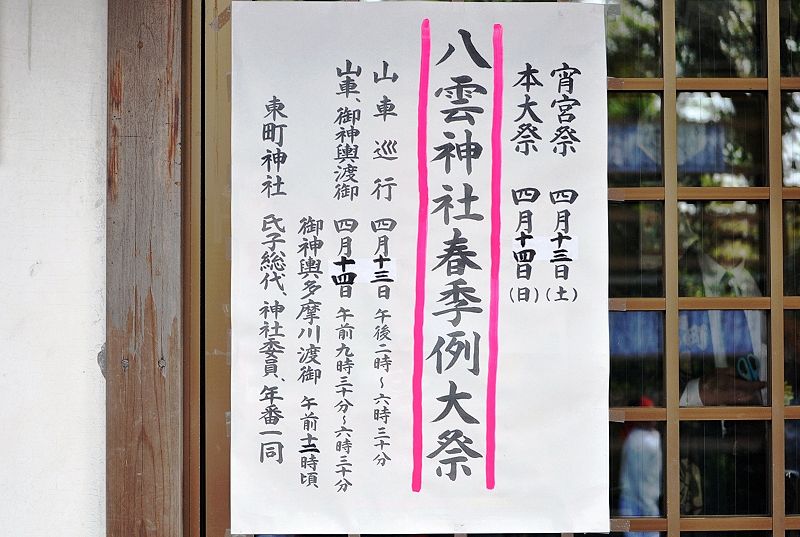 宵宮祭 四月十三日(土)
本大祭 四月十四日(日)
八雲神社春季例大祭
山車巡行 四月十三日 午後二時～六時三十分
山車、御神輿渡御 四月十四日 午前九時三十分～六時三十分
御神輿多摩川渡御 午前十二時頃
東町神社 氏子総代、神社委員、年番一同